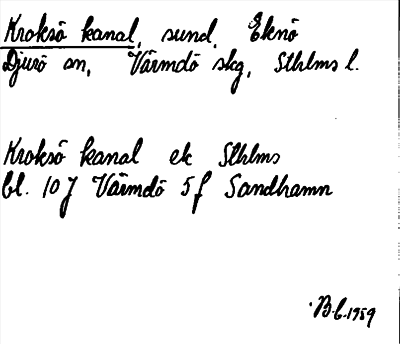 Kroksö kanal, sund, Eknö
Djurö sn, Värmdö skg, Sthlms l.
Kroksö kanal ek Sthlms
bl. 10 J Värmdö 5 f Sandhamn
B.b. 1959